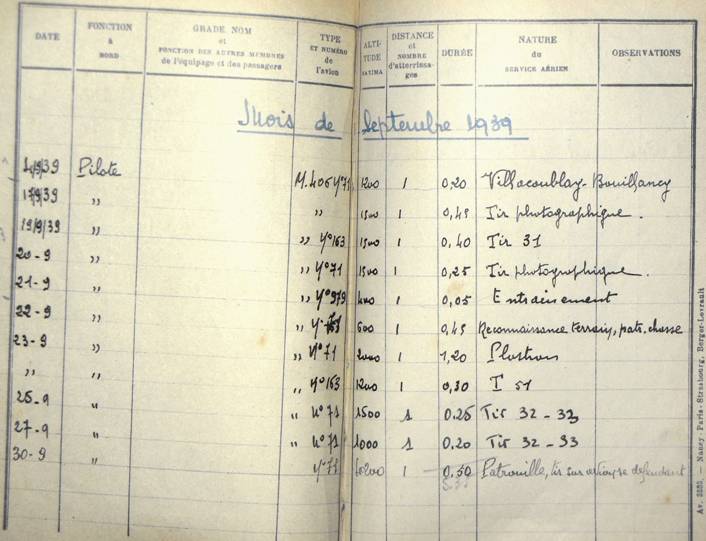 DATE FONCTION à BORD GRADE NOM et FONCTION DES AUTRES MEMBRES de l'équipage et des passagers TYPE ET NUMÉRO de l'avion ALTITUDE MAXIMA DISTANCE et NOMBRE d'atterrissages DURÉE NATURE du SERVICE AÉRIEN OBSERVATIONS
Mois de Septembre 1939
1/9/39 Pilote M.406 N°71 1200 1 0,20 Villacoublay - Bouillancy
17/9/39 " " 1500 1 0,45 Tir photographique.
19/9/39 " " N°163 1500 1 0,40 Tir 31
20-9 " " N°71 1500 1 0,25 Tir photographique.
21-9 " " N°979 400 1 0,05 Entraînement
22-9 " " 600 1 0,45 Reconnaissance terrain, patr. chasse
23-9 " " N°71 2000 1 1,20 Plastron
" " " N°163 1200 1 0,30 T 51
26-9 " " N°71 1500 1 0,25 Tir 32-33
27-9 " " N°71 1000 1 0,20 Tir 32-33
30-9 " N°71 1 0,50 Patrouille, tir sur
Av. 3232. — Nancy-Paris-Strasbourg, Berger-Levrault